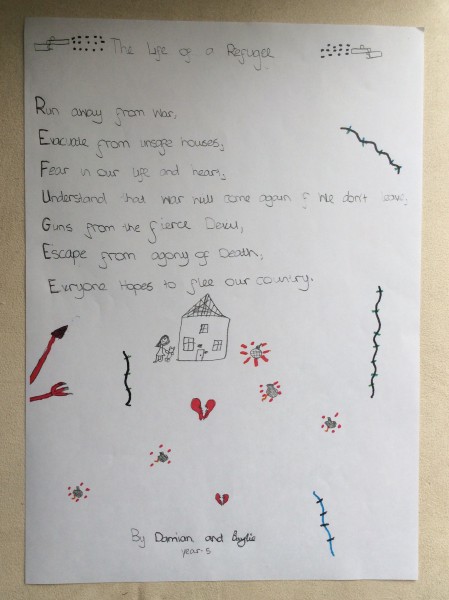 The Life of a Refugee
Run away from war,
Evacuate from unsafe houses,
Fear in our life and heart,
Understand that war will come again if we don't leave,
Guns from the fierce Devil,
Escape from agony of Death,
Everyone Hopes to flee our country.
By Damian and
year-5